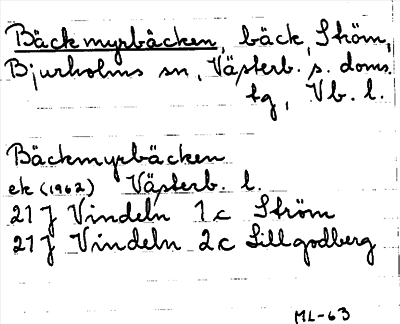 Bäckmyrbäcken, bäck, Ström,
Bjurholms sn, Västerb. s. doms.
tg, Vb. l.
Bäckmyrbäcken
ek (1962) Västerb. l.
21 J Vindeln 1c Ström
21 J Vindeln 2c Lillgodberg
ML-63